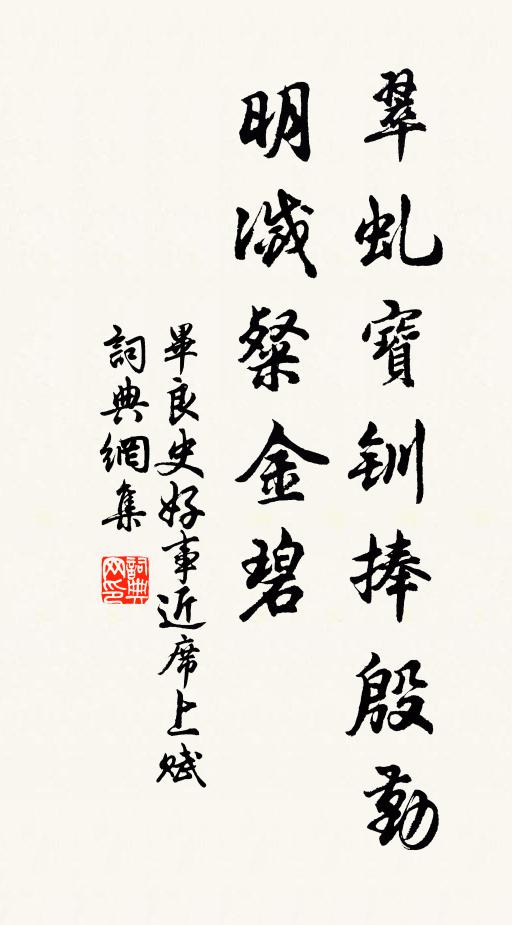 翠虬寶釧捧殷勤
明滅粲金碧
畢良史好事近席上賦
詞典網集
詞典网印